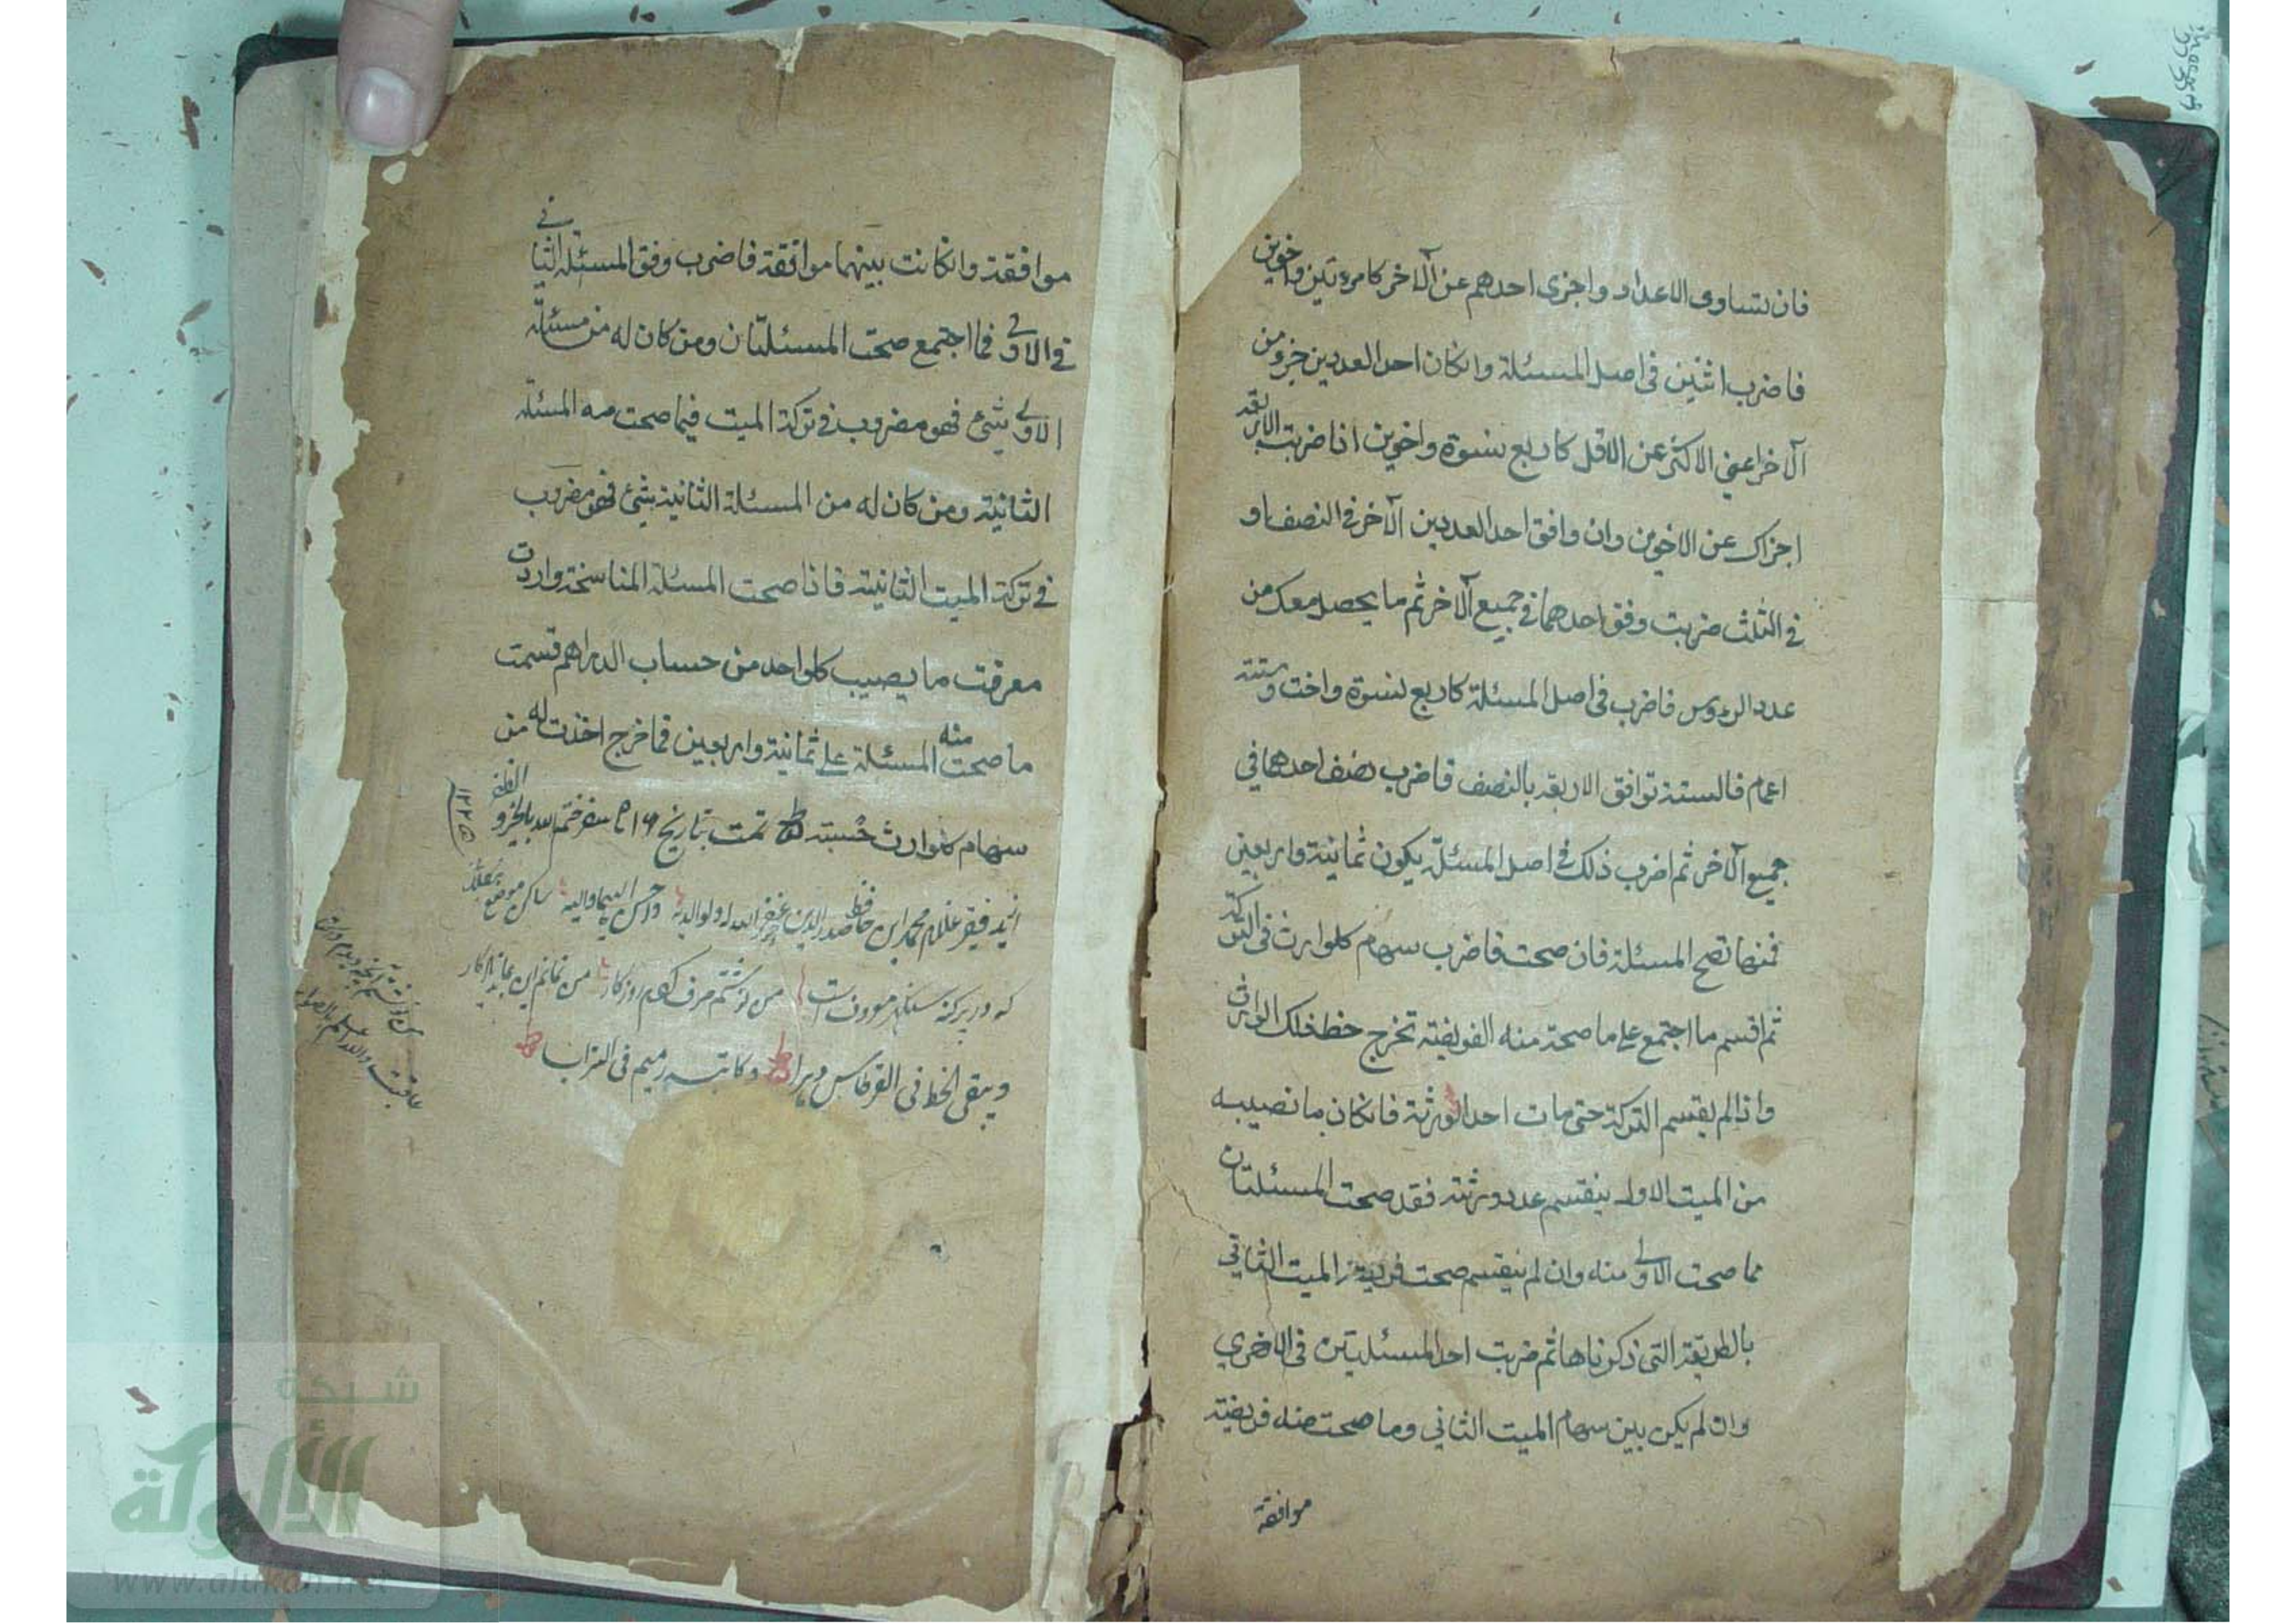 فان تساوى الاعداد واجزى احدهم عن الآخر كامرءتين واخوين
فاضرب اثنين فى اصل المسئلة وانكان احد العددين جزو من
الآخر اعني الاكثر عن الاقل كاربع نسوة واخوين اذا ضربت الاربعة
اجزاك عن الاخوين وان وافق احد العددين الآخر فى النصف او
فى الثلث ضربت وفق احدهما فى جميع الآخر ثم ما يحصل معك من
عدد الرءوس فاضرب فى اصل المسئلة كاربع نسوة واخت وستة
اعمام فالستة توافق الاربعة بالنصف فاضرب نصف احدهما فى
جميع الآخر ثم اضرب ذلك فى اصل المسئلة يكون ثمانية واربعين
فمنها تصح المسئلة فان صحت فاضرب سهام كلوارث فى التركة
ثم اقسم ما اجتمع على ما صحة منه الفريضة تخرج حظ ذلك الوارث
واذا لم يقسم التركة حتى مات احد الورثة فانكان ما نصيبه
من الميت الاول ينقسم عدد ورثته فقد صحت المسئلتان
مما صحت الاولى منه وان لم ينقسم صحت فريضة الميت الثاني
بالطريقة التى ذكرناها ثم ضربت احد المسئلتين فى الاخرى
وان لم يكن بين سهام الميت الثاني وما صحت منه فريضة
موافقة
موافقة وانكانت بينهما موافقة فاضرب وفق المسئلة الثانى
فى الاولى فما اجتمع صحت المسئلتان ومن كان له من مسئلة
الاولى شئ فهو مضروب فى تركة الميت فيما صحت منه المسئلة
الثانية ومن كان له من المسئلة الثانية شئ فهو مضروب
فى تركة الميت الثانية فاذا صحت المسئلة المناسخة واردت
معرفت ما يصيب كلواحد من حساب الدراهم قسمت
ما صحت منه المسئلة على ثمانية واربعين فما خرج اخذت له من
سهام كلوارث حسبته تمت بتاريخ ١٦ سفر ختم الله بالخير و الظفر
فقير غلام محمد ابن حافظ صدر الدين غفر الله له ولوالديه واحسن اليهما واليه ساكن موضع
كه در پرگنه معروف است من نوشتم صرف كردم روزگار من نمانم اين بماند يادگار
ويبقى الخط فى القرطاس دهرا وكاتبه رميم فى التراب
شبكة
الألوكة
www.alukah.net